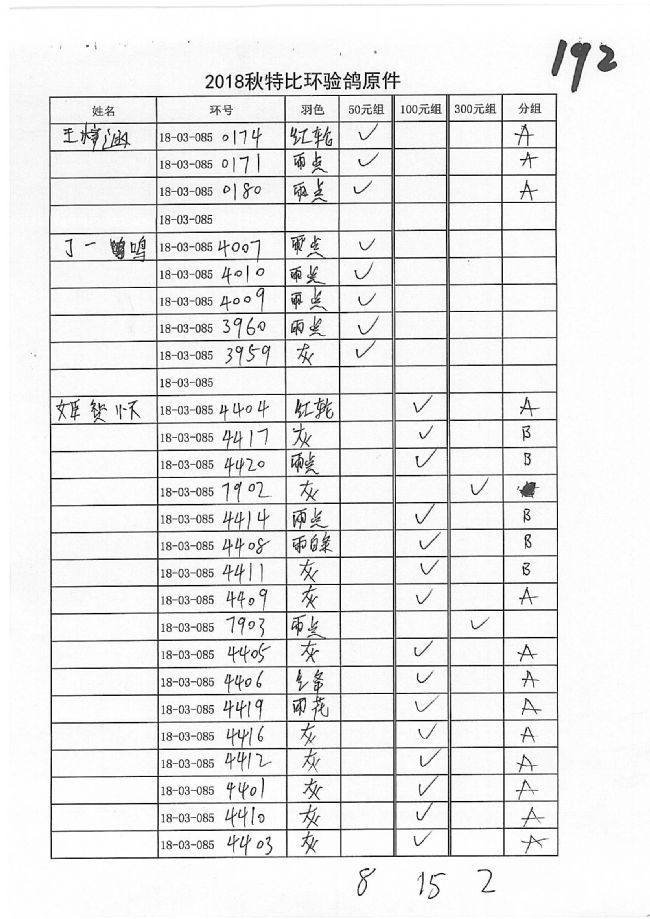 192
2018秋特比环验鸽原件
姓名 环号 羽色 50元组 100元组 300元组 分组
王 18-03-085 0174 红轮 ✓ A
18-03-085 0171 雨点 ✓ A
18-03-085 0180 雨点 ✓ A
18-03-085
丁一鸣 18-03-085 4007 雨点 ✓
18-03-085 4010 雨点 ✓
18-03-085 4009 雨点 ✓
18-03-085 3960 雨点 ✓
18-03-085 3959 灰 ✓
18-03-085
18-03-085 4404 红轮 ✓ A
18-03-085 4417 灰 ✓ B
18-03-085 4420 雨点 ✓ B
18-03-085 7902 灰 ✓
18-03-085 4414 雨点 ✓ B
18-03-085 4408 雨白条 ✓ B
18-03-085 4411 灰 ✓ B
18-03-085 4409 灰 ✓ A
18-03-085 7903 雨点 ✓
18-03-085 4405 灰 ✓ A
18-03-085 4406 ✓ A
18-03-085 4419 雨花 ✓ A
18-03-085 4416 灰 ✓ A
18-03-085 4412 灰 ✓ A
18-03-085 4401 灰 ✓ A
18-03-085 4410 灰 ✓ A
18-03-085 4403 灰 ✓ A
8 15 2